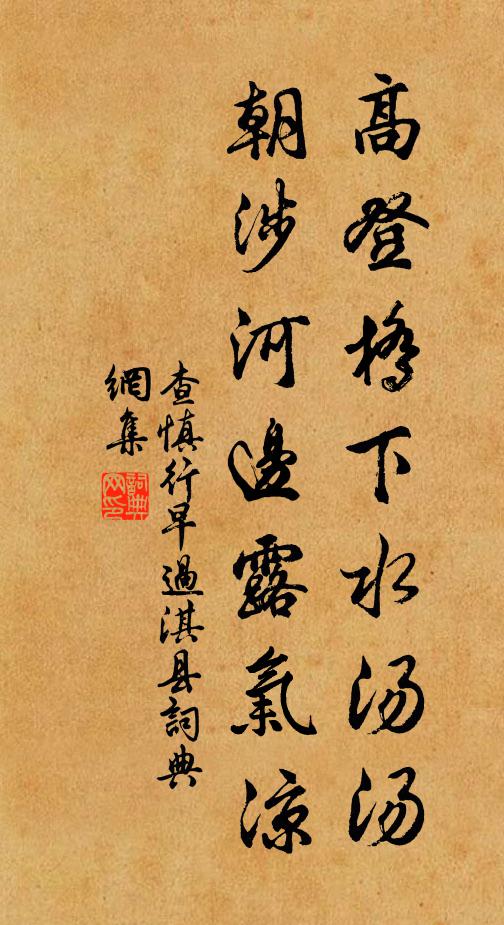 高登橋下水汤汤
朝涉河邊露氣凉
查慎行早過淇县詞典
網集
詞典
网印